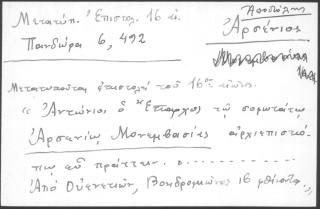 Μετατύπ. Ἐπιστολ. 16 αἰ.
Πανδώρα 6, 492
Ἀποστόλης
Ἀρσένιος
Μονεμβασίας
Μετατυποῦται ἐπιστολὴ τοῦ 16ου αἰῶνος.
« Ἀντώνιος ὁ Ἔπαρχος τῷ σοφωτάτῳ
Ἀρσενίῳ Μονεμβασίας ἀρχιεπισκό-
πῳ εὖ πράττειν. ..........
Ἀπὸ Οὐενετιῶν, Βοηδρομιῶνος 16 φθίνοντος.»